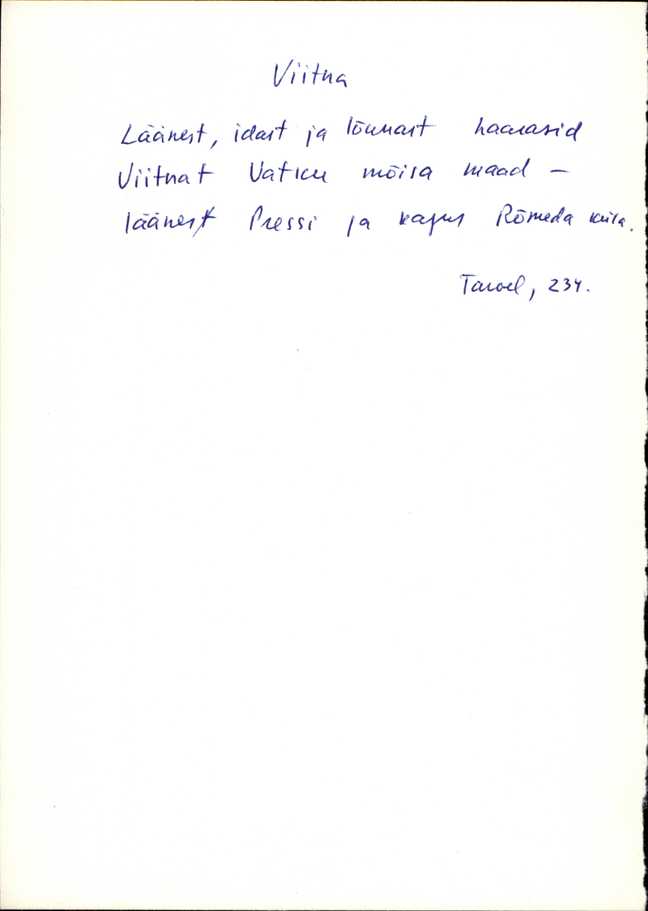 Viitna
Läänest, idast ja lõunast haarasid
Viitnat Vatku mõisa maad –
läänest Pressi ja kagus Rõmeda küla.
Tarvel, 234.